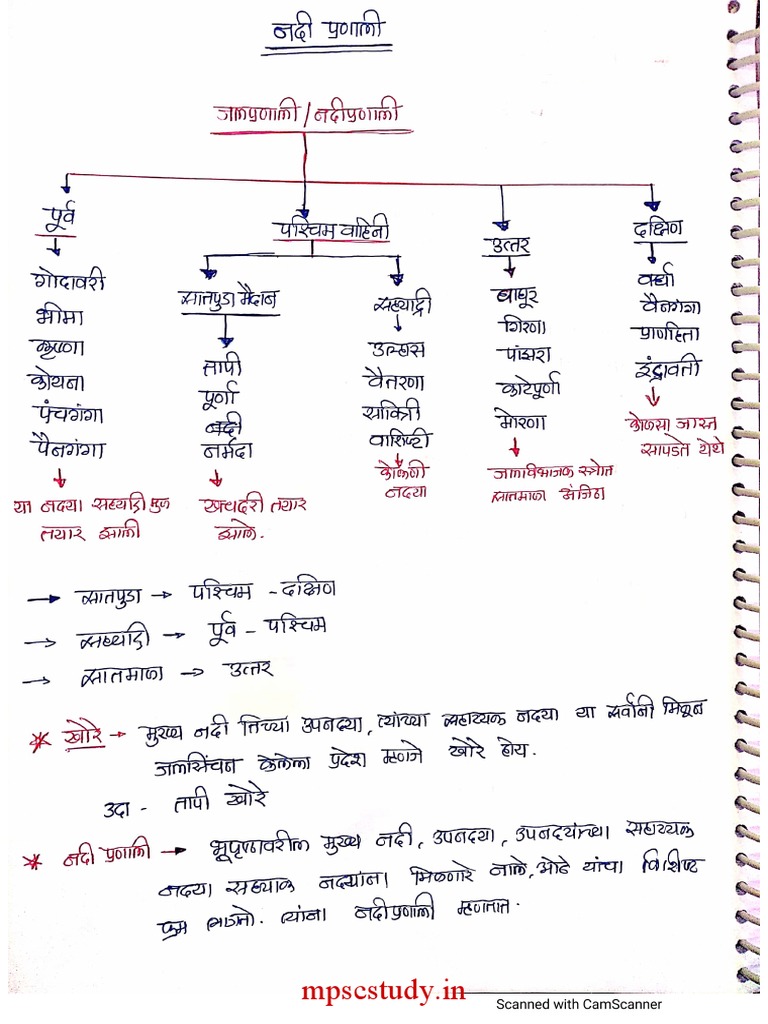 नदी प्रणाली
जलप्रणाली / नदीप्रणाली
पूर्व
गोदावरी
भीमा
कृष्णा
कोयना
पंचगंगा
पैनगंगा
या नद्या सह्याद्री मुळे
तयार झाली
पश्चिम वाहिनी
सातपुडा मैदान
तापी
पूर्णा
नदी
नर्मदा
खचदरी तयार
झाले.
सह्याद्री
उल्हास
वैतरणा
सावित्री
वाशिष्टी
कोकणी
नदया
उत्तर
वाघूर
गिरणा
पांझरा
काटेपूर्णा
मोरणा
जलविभाजक स्त्रोत
सातमाळा अंजिठा
दक्षिण
वर्धा
वैनगंगा
प्राणहिता
इंद्रावती
कोळसा जास्त
सापडते येथे
→ सातपुडा → पश्चिम - दक्षिण
→ सह्याद्री → पूर्व - पश्चिम
→ सातमाळा → उत्तर
* खोरे → मुख्य नदी तिच्या उपनद्या, त्यांच्या सहाय्यक नदया या सर्वांनी मिळून
जलसिंचन केलेला प्रदेश म्हणजे खोरे होय.
उदा - तापी खोरे
* नदी प्रणाली → भूपृष्ठावरील मुख्य नदी, उपनदया, उपनदयांच्या सहाय्यक
नदया नदयांना मिळणारे नाले, ओढे यांचा विशिष्ट
क्रम लागतो. त्यांना नदीप्रणाली म्हणतात.
mpscstudy.in
Scanned with CamScanner